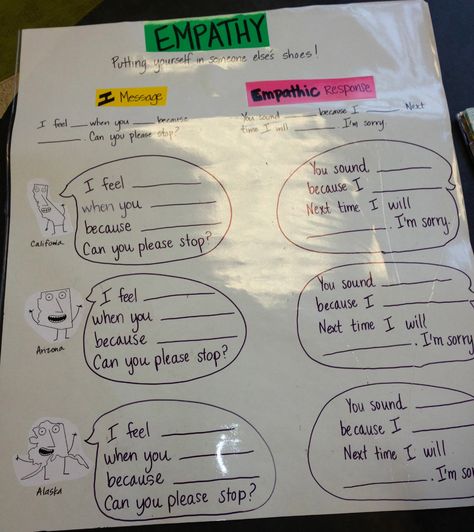 EMPATHY
Putting yourself in someone else's shoes!
I Message
Empathic Response
I feel ___ when you ___ because
___. Can you please stop?
You sound ___ because I ___. Next
time I will ___. I'm sorry.
California
I feel ___
when you ___
because ___
Can you please stop?
You sound ___
because I ___
Next time I will
___. I'm sorry.
Arizona
I feel ___
when you ___
because ___
Can you please stop?
You sound ___
because I ___
Next time I will
___. I'm sorry
Alaska
I feel ___
when you ___
because ___
Can you please stop?
You sound ___
because I ___
Next time I will
___. I'm so